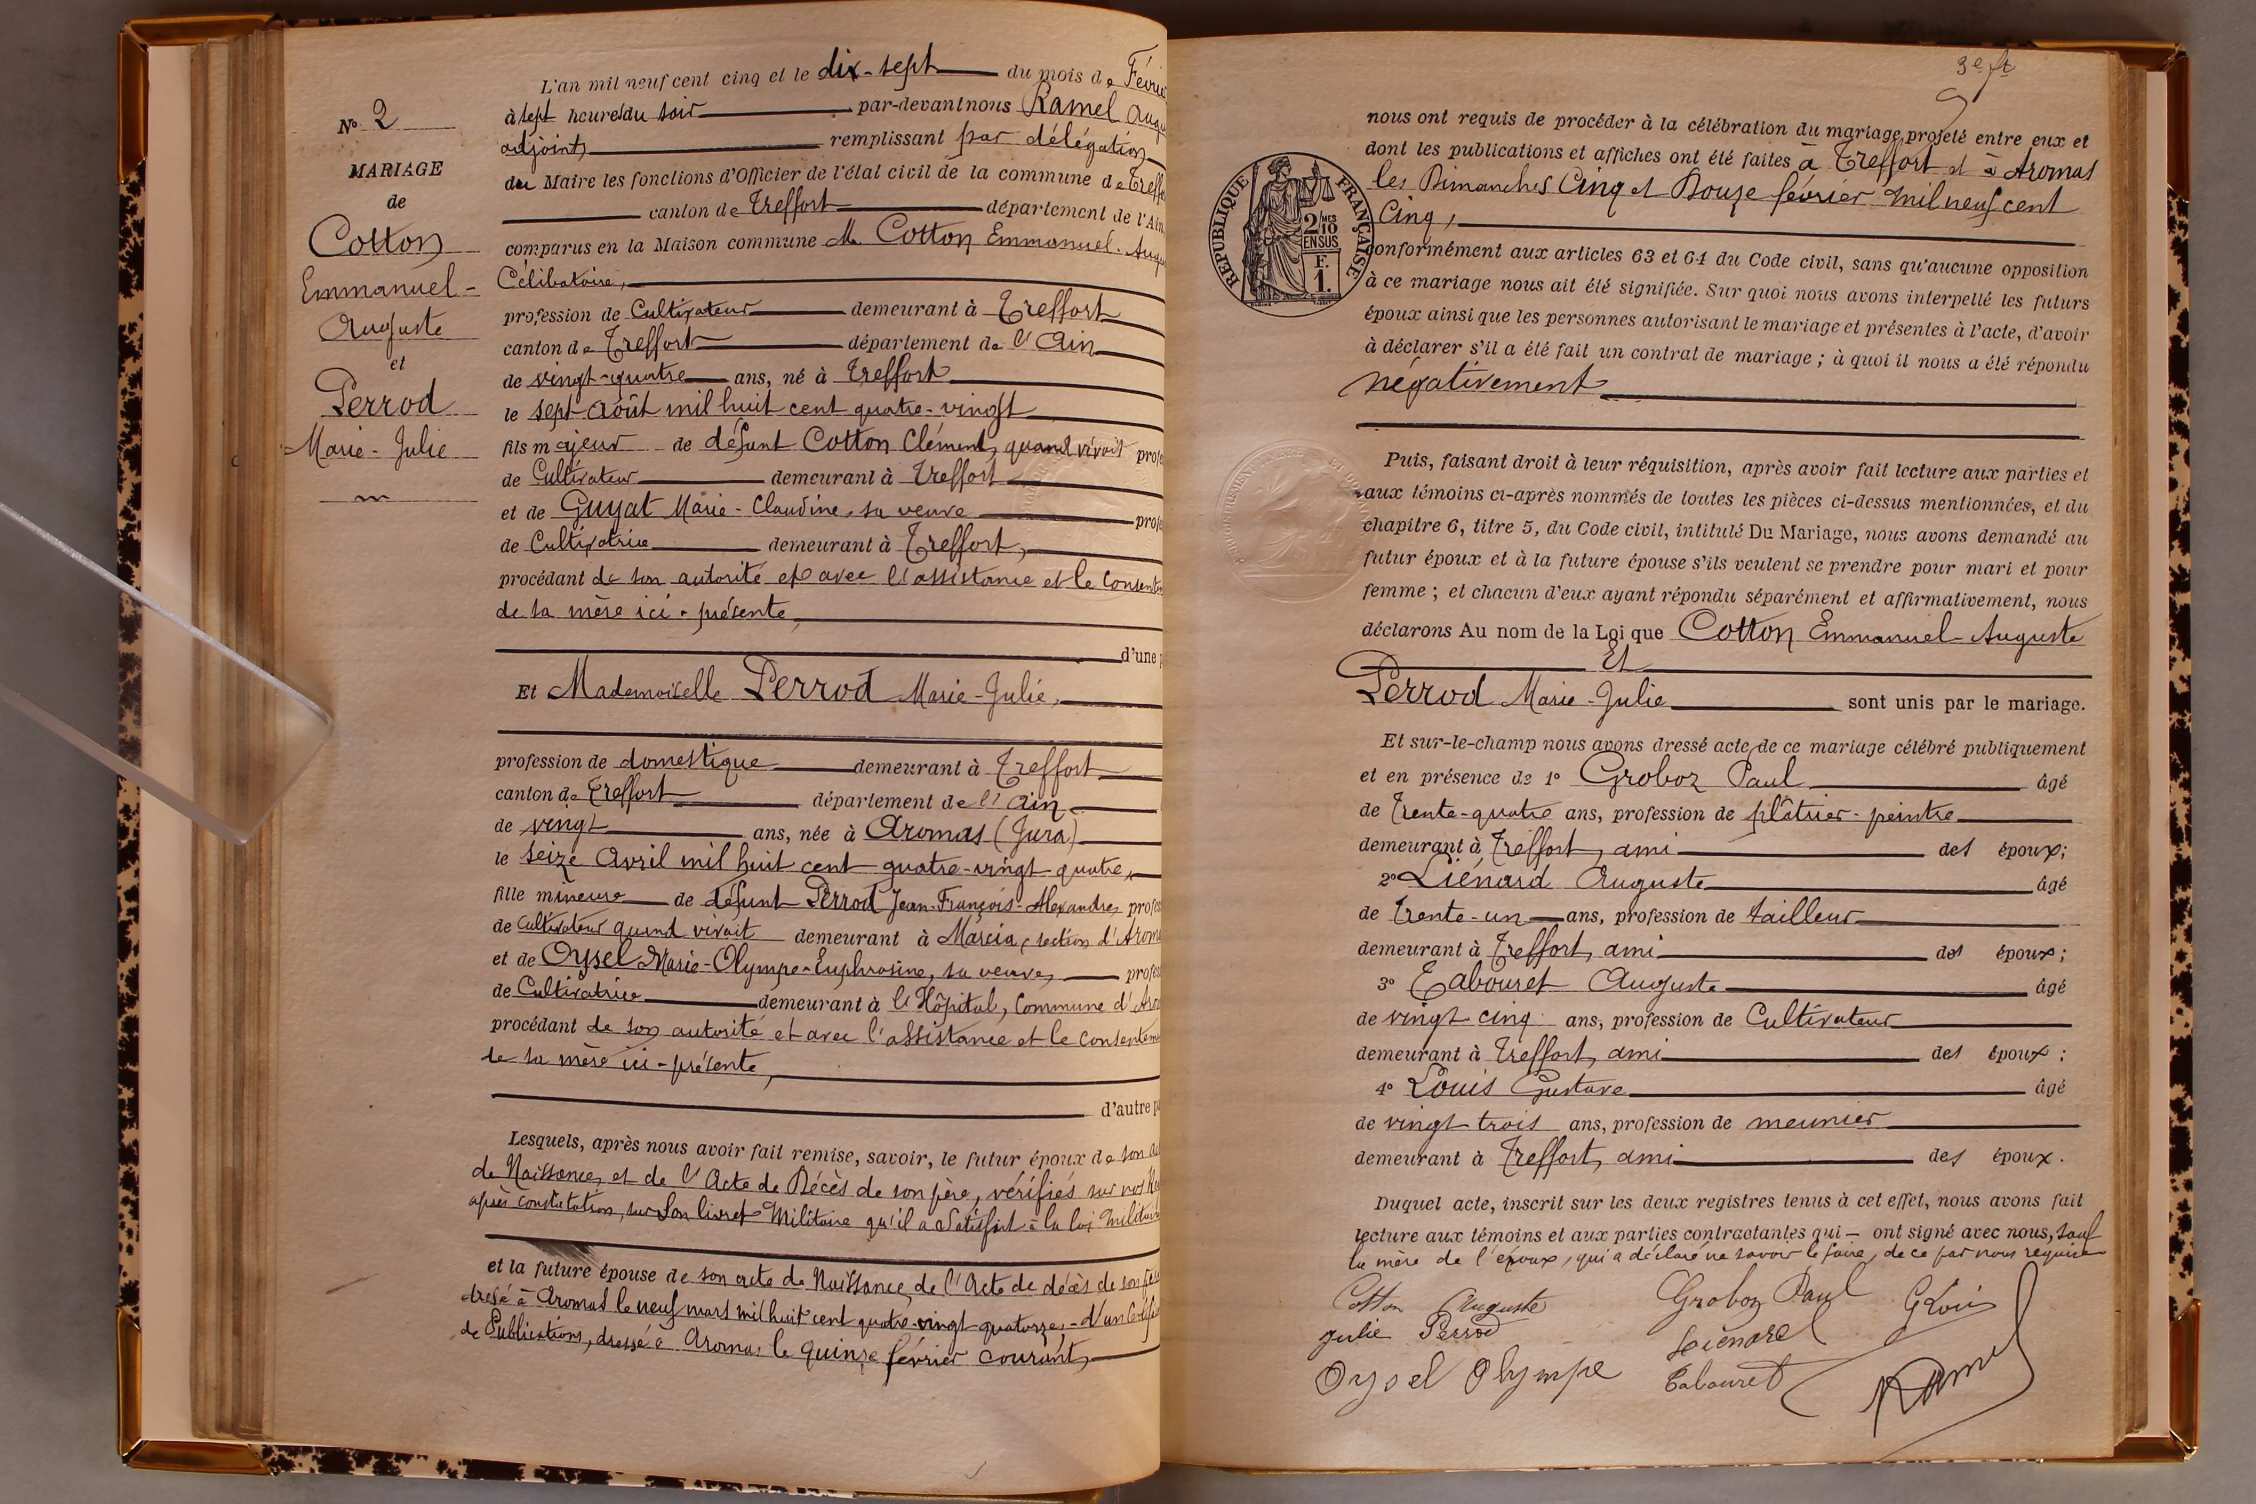 L'an mil neuf cent cinq et le dix-sept du mois de
à sept heures du soir par-devant nous Ramel
adjoint, remplissant par délégation
du Maire les fonctions d'Officier de l'état civil de la commune de
canton de Treffort département de l'Ain,
comparus en la Maison commune M. Cotton Emmanuel-
Célibataire,
profession de Cultivateur demeurant à Treffort
canton de Treffort département de l'Ain
de vingt-quatre ans, né à Treffort
le sept Août mil huit cent quatre-vingt
fils majeur de défunt Cotton Clément, quand vivait
de Cultivateur demeurant à Treffort
et de Guyat Marie-Claudine, sa veuve
de Cultivatrice demeurant à Treffort,
procédant de son autorité et avec l'assistance et le
de sa mère ici-présente,
d'une
Et Mademoiselle Perrod Marie-Julie,
profession de domestique demeurant à Treffort
canton de Treffort département de l'Ain
de vingt ans, née à Aromas (Jura)
le seize Avril mil huit cent quatre-vingt-quatre,
fille mineure de défunt Perrod Jean-François-Alexandre,
de Cultivateur quand vivait demeurant à Marcia, section
et de Oysel Marie-Olympe-Euphrosine, sa veuve,
de Cultivatrice demeurant à l'Hôpital, Commune
procédant de son autorité et avec l'assistance et le
de sa mère ici-présente,
d'autre
Lesquels, après nous avoir fait remise, savoir, le futur époux de son
de Naissance, et de l'Acte de Décès de son père, vérifiés sur nos
après constatation, sur son livret Militaire qu'il a satisfait à la loi
et la future épouse de son acte de Naissance, de l'Acte de décès de son
dressé à Aromas le neuf mars mil huit cent quatre-vingt-quatorze, - d'un
de Publications, dressé à Aromas le quinze février courant,
N° 2
MARIAGE
de
Cotton
Emmanuel-
Auguste
et
Perrod
Marie-Julie
3e ft
nous ont requis de procéder à la célébration du mariage projeté entre eux et
dont les publications et affiches ont été faites à Treffort et à Aromas
les Dimanches Cinq et Douze février mil neuf cent
Cinq,
conformément aux articles 63 et 64 du Code civil, sans qu'aucune opposition
à ce mariage nous ait été signifiée. Sur quoi nous avons interpellé les futurs
époux ainsi que les personnes autorisant le mariage et présentes à l'acte, d'avoir
à déclarer s'il a été fait un contrat de mariage ; à quoi il nous a été répondu
négativement
RÉPUBLIQUE FRANÇAISE
2/10 MES
EN SUS
F.
1.
Puis, faisant droit à leur réquisition, après avoir fait lecture aux parties et
aux témoins ci-après nommés de toutes les pièces ci-dessus mentionnées, et du
chapitre 6, titre 5, du Code civil, intitulé Du Mariage, nous avons demandé au
futur époux et à la future épouse s'ils veulent se prendre pour mari et pour
femme ; et chacun d'eux ayant répondu séparément et affirmativement, nous
déclarons Au nom de la Loi que Cotton Emmanuel-Auguste
Et
Perrod Marie-Julie sont unis par le mariage.
Et sur-le-champ nous avons dressé acte de ce mariage célébré publiquement
et en présence de 1° Groboz Paul âgé
de trente-quatre ans, profession de plâtrier-peintre
demeurant à Treffort, ami des époux;
2° Liénard Auguste âgé
de trente-un ans, profession de tailleur
demeurant à Treffort, ami des époux;
3° Tabouret Auguste âgé
de vingt cinq ans, profession de Cultivateur
demeurant à Treffort, ami des époux ;
4° Louis Gustave âgé
de vingt trois ans, profession de meunier
demeurant à Treffort, ami des époux.
Duquel acte, inscrit sur les deux registres tenus à cet effet, nous avons fait
lecture aux témoins et aux parties contractantes qui ont signé avec nous, sauf
la mère de l'époux, qui a déclaré ne savoir le faire, de ce par nous requise
Cotton Auguste Groboz Paul G Louis
Julie Perrod Liénard
Oysel Olympe Tabouret Ramel